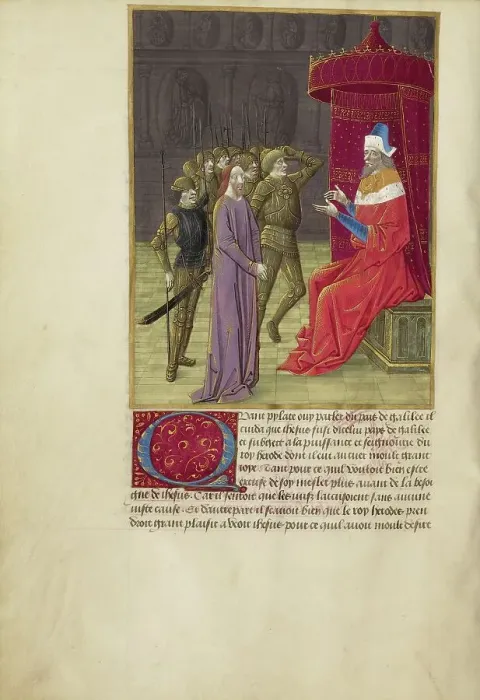 Quant pylate ouy parler du pais de galilee il
cuida que ihesus fust diceluy pays de galilee
et subgect a la puissance et seignourie du
roy herode dont il eut au cuer moult grant
ioye. Tant pour ce quil vouloit bien estre
excuse de soy mesler plus auant de la besoi
gne de ihesus. Car il sentoit que les iuifz lacusoient sans aucune
iuste cause. Et dautre part il scauoit bien que le roy herodes pren
droit grant plaisir a veoir ihesus pour ce quil auoit moult desire